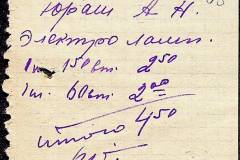 Юраш А Н.
Электро ламп.
1 шт. 150 вт. 2 50
1 шт. 60 вт. 2 00
Итого 4 50